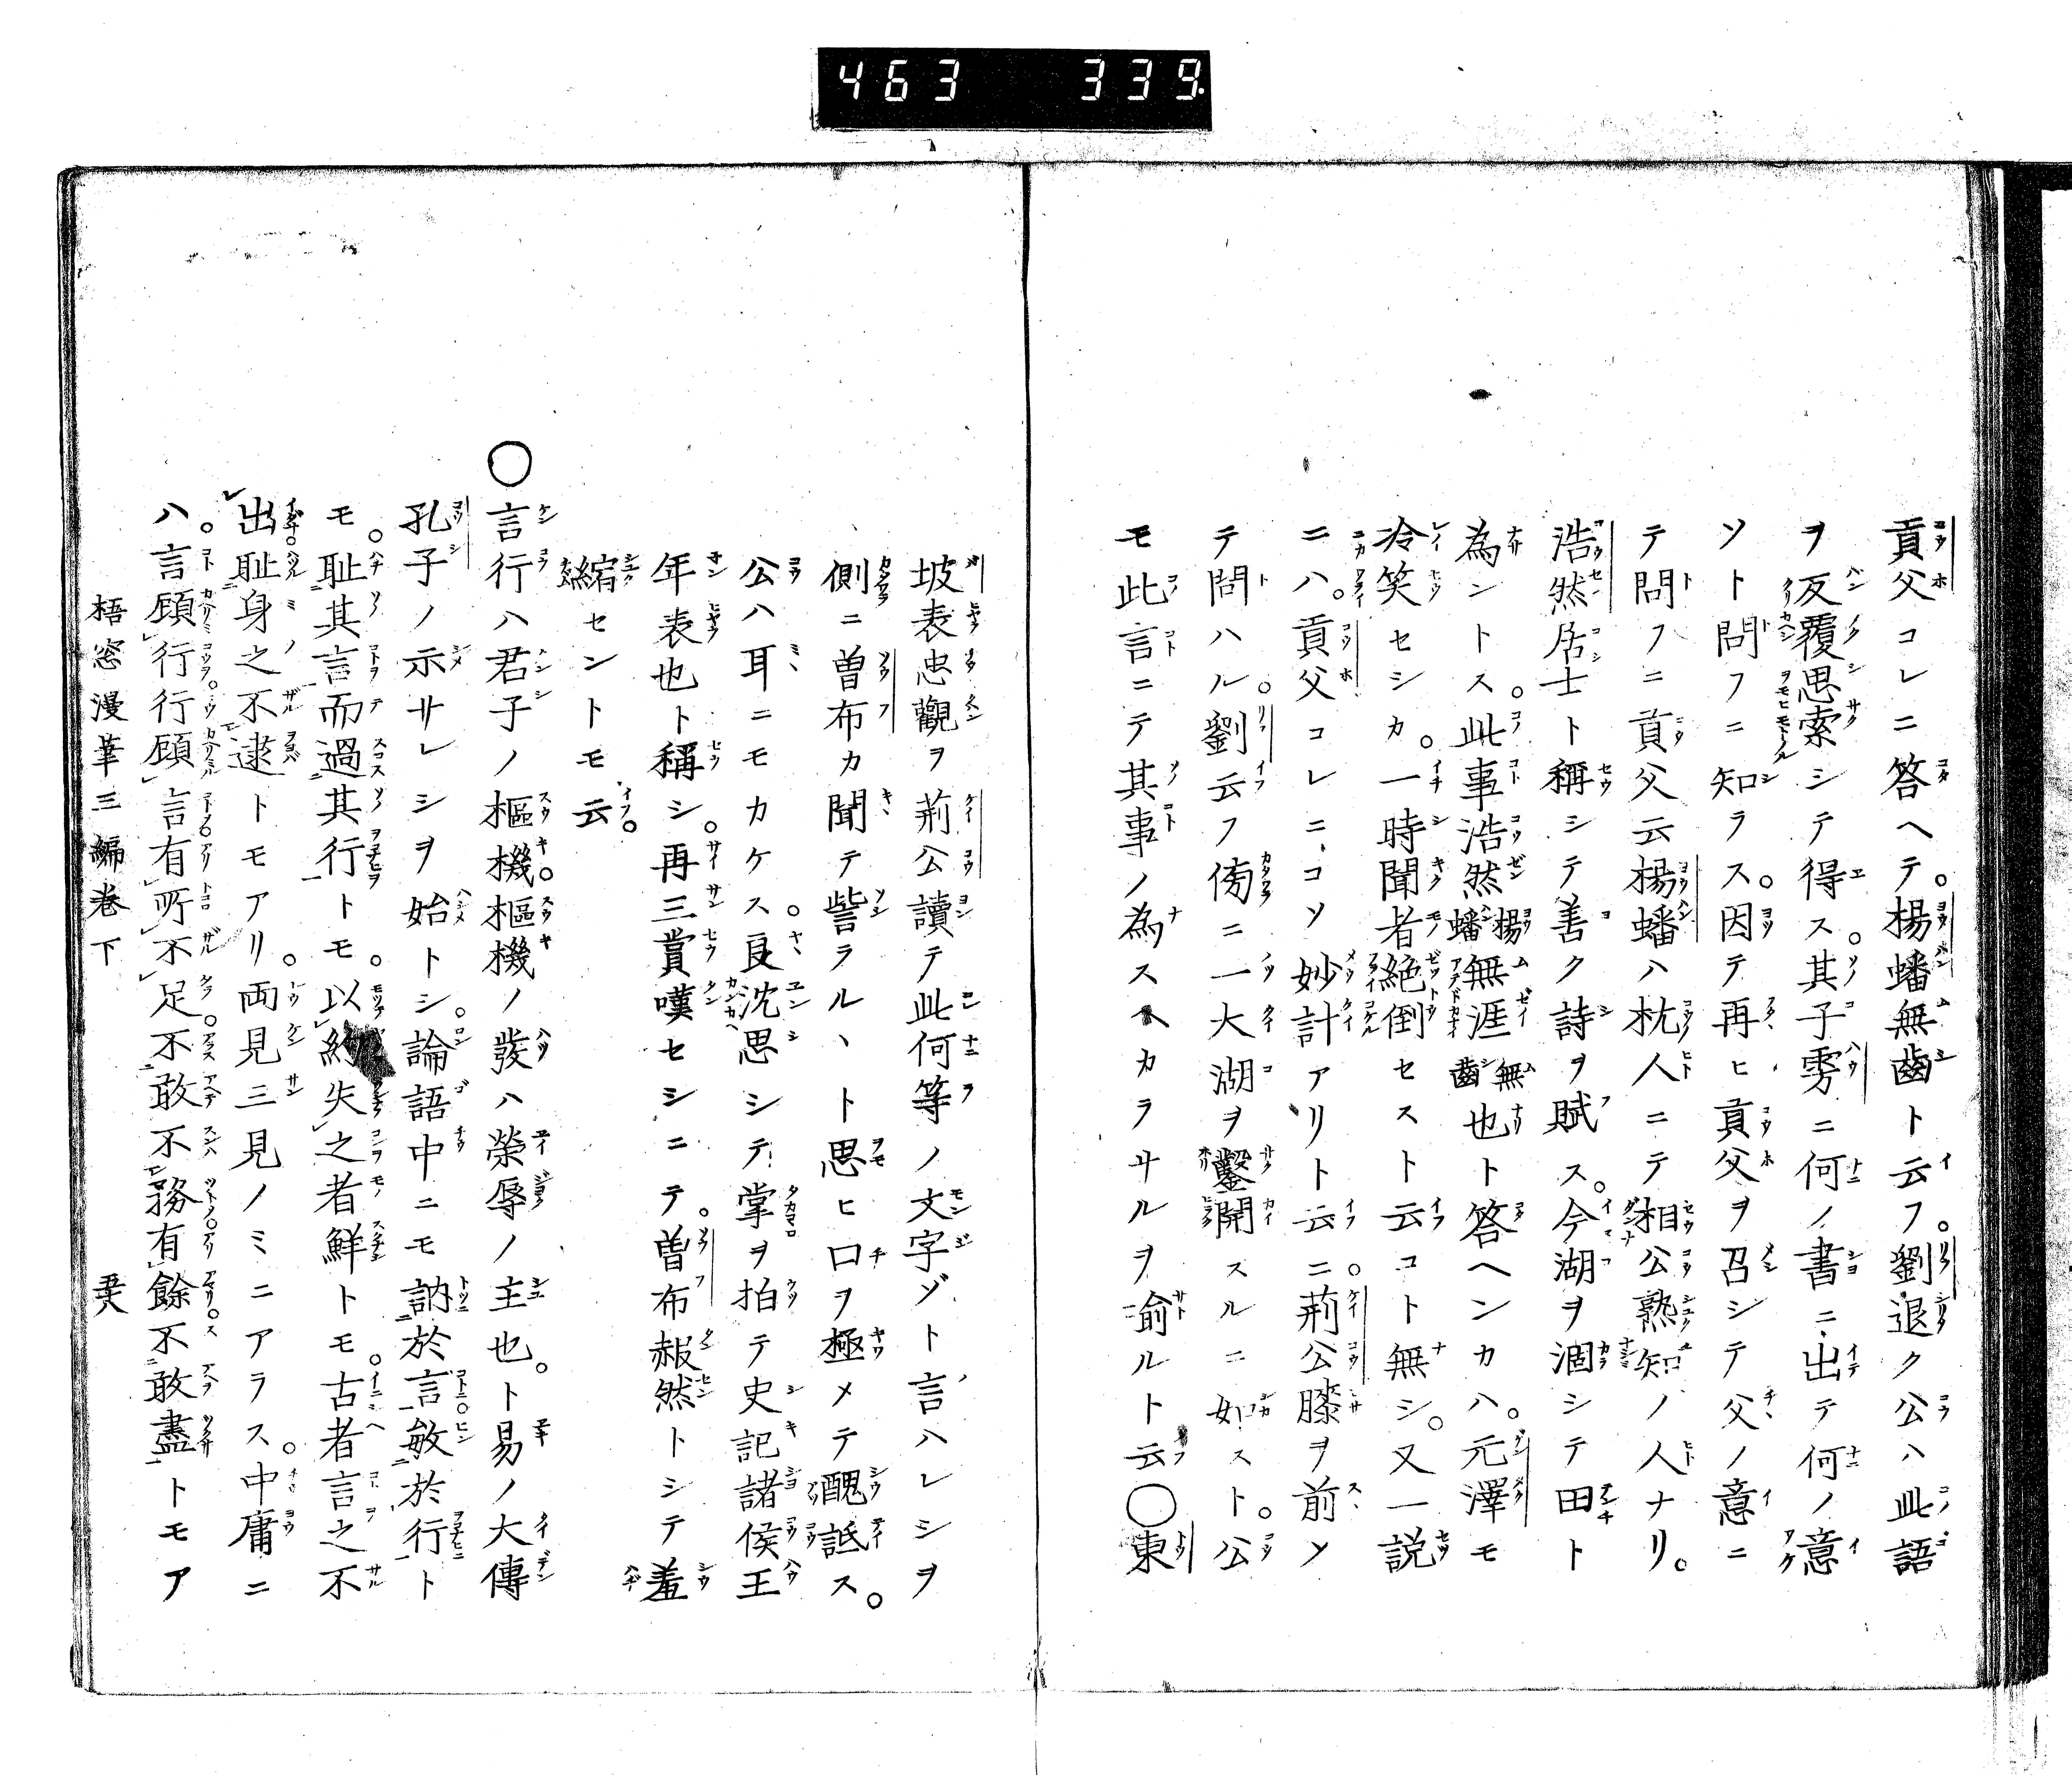 463 339
貢父コレニ答ヘテ。楊蟠無齒ト云フ。劉退ク公ハ此語
ヲ反覆思索シテ得ス。其子雱ニ何ノ書ニ出テ何ノ意
ソト問フニ知ラス。因テ再ヒ貢父ヲ召シテ父ノ意ニ
テ問フニ貢父云楊蟠ハ杭人ニテ相公熟知ノ人ナリ。
浩然居士ト稱シテ善ク詩ヲ賦ス。今湖ヲ涸シテ田ト
為ントス。此事浩然楊蟠無涯無齒也ト答ヘンカハ。元澤モ
冷笑セシカ。一時聞者絶倒セスト云コト無シ。又一説
ニハ。貢父コレニコソ妙計アリト云ニ。荊公膝ヲ前ン
テ問ハル。劉云フ傍ニ一大湖ヲ鑿開スルニ如スト。公
モ此言ニテ其事ノ為スヘカラサルヲ喻ルト云〇東
坡表忠觀ヲ荊公讀テ此何等ノ文字ゾト言ハレシヲ
側ニ曽布カ聞テ訾ラルヽト思ヒ口ヲ極メテ醜詆ス。
公ハ耳ニモカケス。良沈思シテ掌ヲ拍テ史記諸侯王
年表也ト稱シ。再三賞嘆セシニテ。曽布赧然トシテ羞
縮セントモ云。
〇言行ハ君子ノ樞機。樞機ノ發ハ榮辱ノ主也。ト易ノ大傳
孔子ノ示サレシヲ始トシ。論語中ニモ訥於言敏於行ト
モ。耻其言而過其行トモ。以約失之者鮮トモ。古者言之不
出耻身之不逮トモアリ。両見三見ノミニアラス。中庸ニ
ハ。言顧行行顧言有所不足不敢不務有餘不敢盡トモア
梧窓漫筆三編巻下